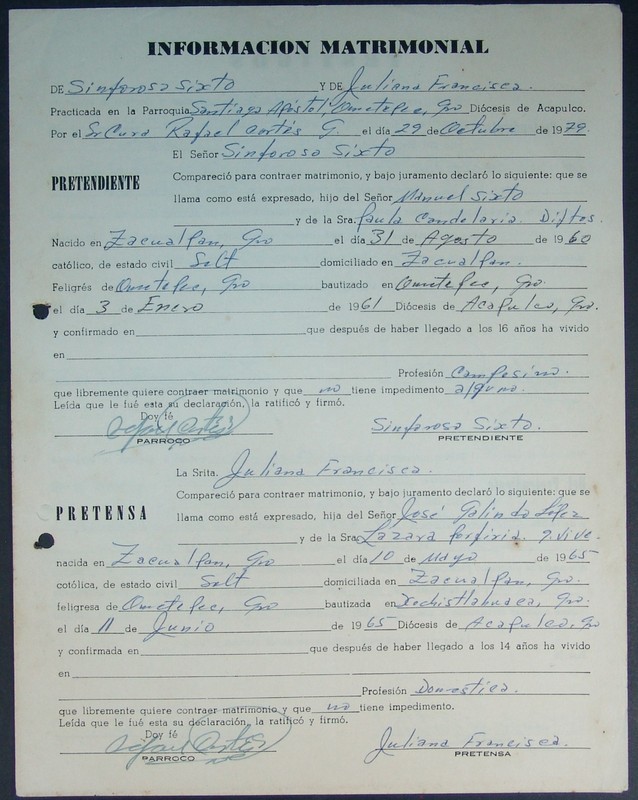 INFORMACION MATRIMONIAL
DE Sinforoso Sixto Y DE Juliana Francisca.
Practicada en la Parroquia Santiago Apóstol, Ometepec, Gro Diócesis de Acapulco.
Por el Sr Cura Rafael Cortés G. el día 29 de Octubre de 1979.
El Señor Sinforoso Sixto
PRETENDIENTE
Compareció para contraer matrimonio, y bajo juramento declaró lo siguiente: que se
llama como está expresado, hijo del Señor Manuel Sixto
y de la Sra. Paula Candelaria. Diftes.
Nacido en Zacualpan, Gro el día 31 de Agosto de 1960
católico, de estado civil Solt domiciliado en Zacualpan.
Feligrés de Ometepec, Gro bautizado en Ometepec, Gro.
el día 3 de Enero de 1961 Diócesis de Acapulco, Gro.
y confirmado en que después de haber llegado a los 16 años ha vivido
en
Profesión Campesino.
que libremente quiere contraer matrimonio y que no tiene impedimento alguno.
Leída que le fué esta su declaración, la ratificó y firmó.
Doy fé
Rafael Cortés Sinforoso Sixto.
PARROCO PRETENDIENTE
La Srita. Juliana Francisca.
Compareció para contraer matrimonio, y bajo juramento declaró lo siguiente: que se
PRETENSA
llama como está expresado, hija del Señor José Galindo López
y de la Sra. Lazara Porfiria. q. vive.
nacida en Zacualpan, Gro el día 10 de Mayo de 1965
cotólica, de estado civil Solt domiciliada en Zacualpan, Gro.
feligresa de Ometepec, Gro bautizada en Xochistlahuaca, Gro.
el día 11 de Junio de 1965 Diócesis de Acapulco, Gro
y confirmada en que después de haber llegado a los 14 años ha vivido
en
Profesión Domestica.
que libremente quiere contraer matrimonio y que no tiene impedimento.
Leída que le fué esta su declaración, la ratificó y firmó.
Doy fé
Rafael Cortés Juliana Francisca.
PARROCO PRETENSA